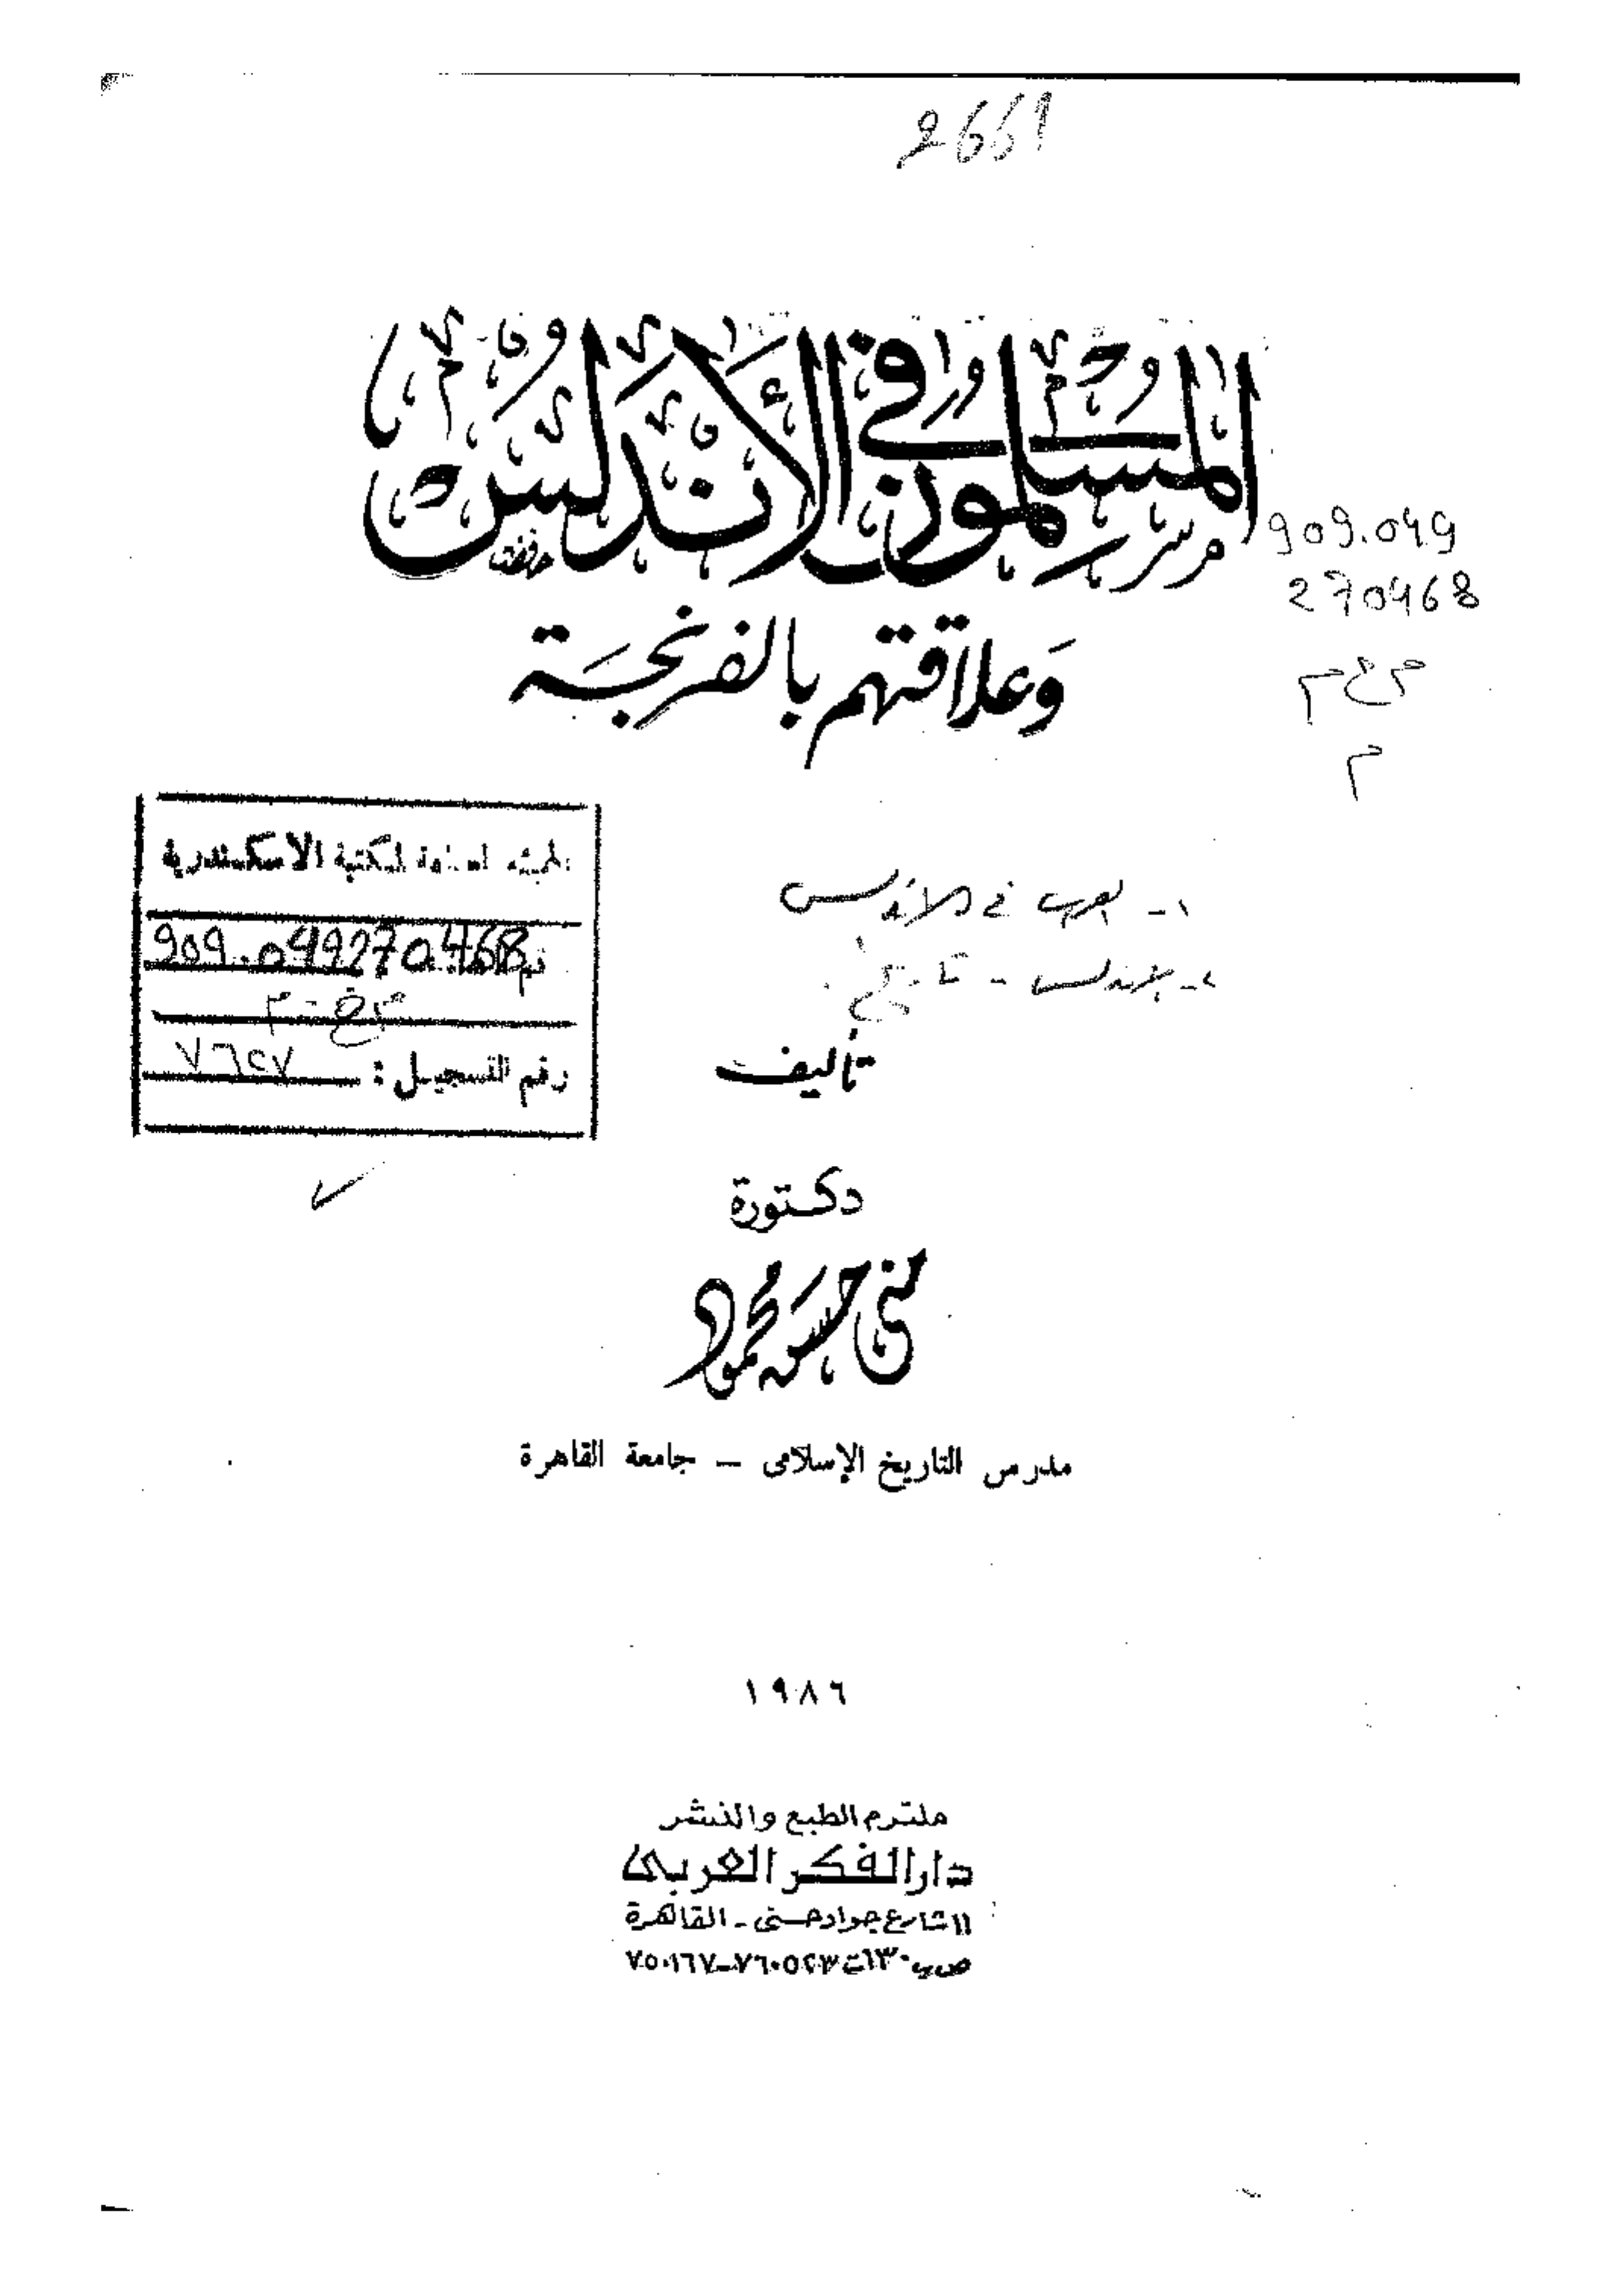 2661
المسلمون في الأندلس
909.049
270468
وَعلاقتهم بالفرنجَة
م ح م
م
الهيئة العامة لمكتبة الاسكندرية
909.049270468
رقم التسجيل: ٧٦٢٧
١- العرب في الأندلس
٢- الأندلس - تاريخ
تأليف
دكتورة
منى حسن محمود
مدرس التاريخ الإسلامى – جامعة القاهرة
١٩٨٦
ملتزم الطبع والنشر
دار الفكر العربى
١١ شارع جواد حسنى - القاهرة
ص.ب ١٣٠ ت ٧٦٠٥٢٣-٧٥٠١٦٧